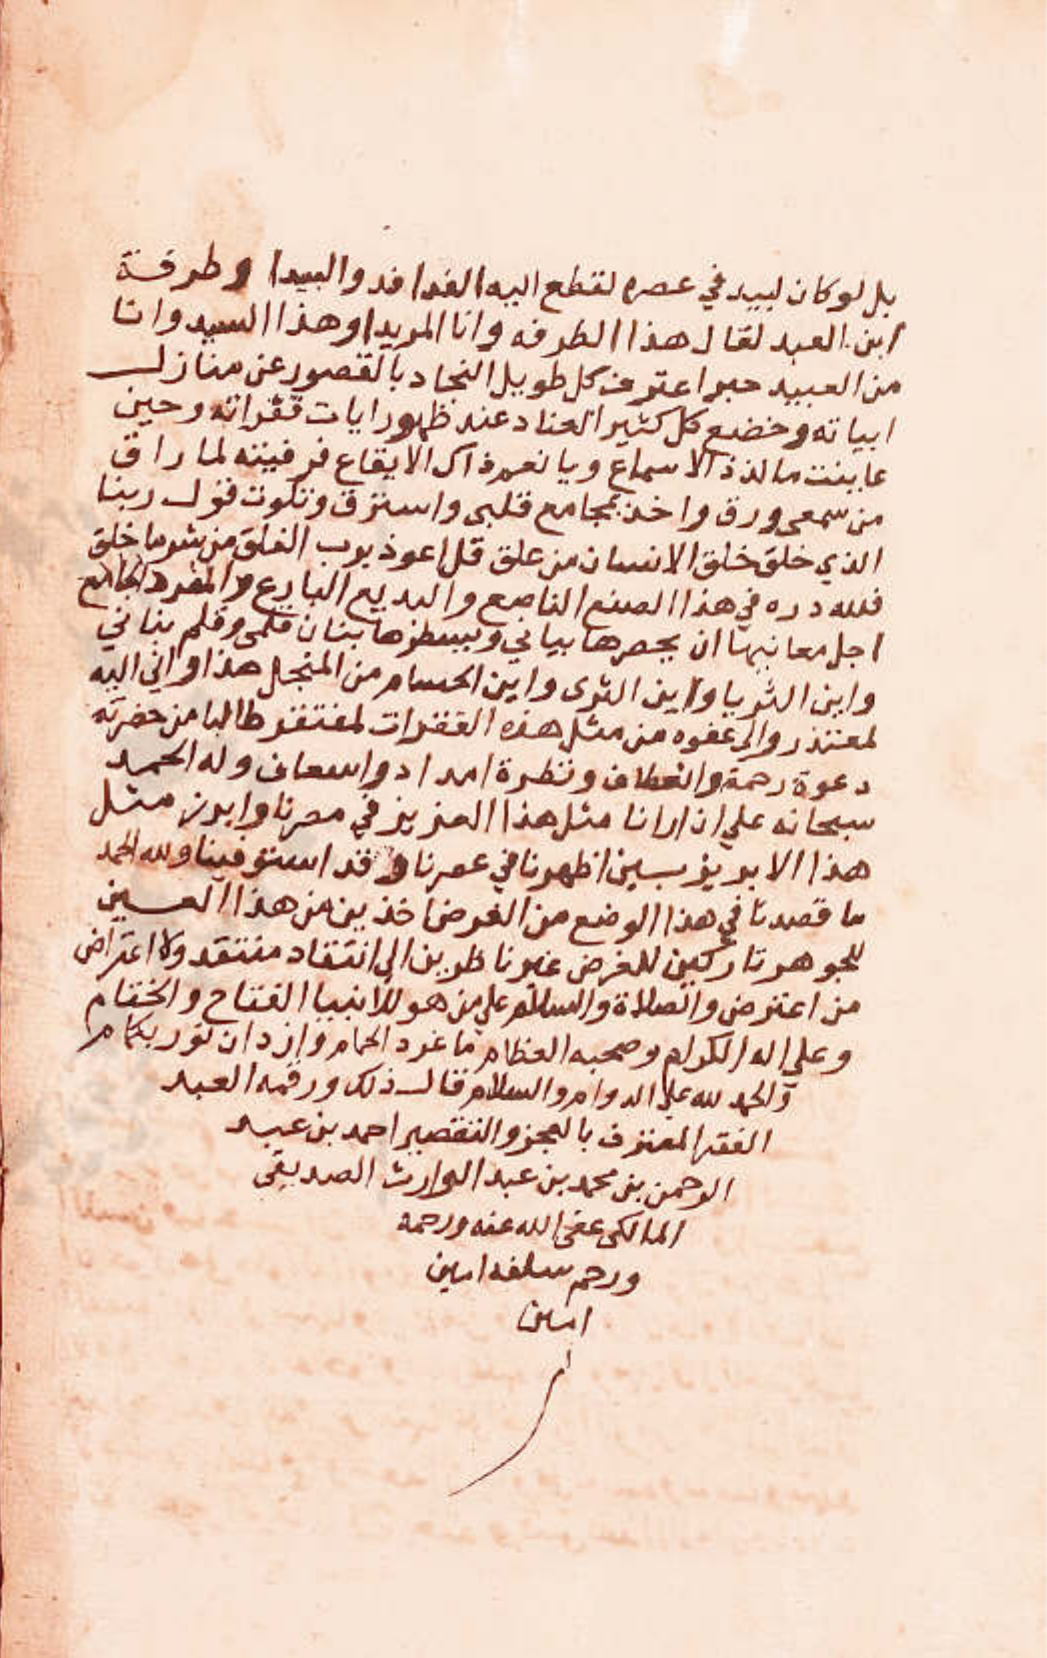 بل لوكان لبيد في عصره لقطع اليه الفدافد والبيدا وطرفة
ابن العبد لقال هذا الطرفه وانا المريد او هذا السيد وانا
من العبيد حبرا اعترف كل طويل النجاد بالقصور عن منازلـــ
ابياته وخضع كل كثير العناد عند ظهور ايات فقراته وحين
عاينت مالذذ الاسماع ويا نعم ذاك الايقاع فرقيته لما راق
من سمعي ورق واخذ بمجامع قلبي واسترق وتلوت قول ربنا
الذي خلق خلق الانسان من علق قل اعوذ برب الفلق من شر ما خلق
فلله دره في هذا الصنع الناصع والبديع البارع والمفرد الجامع
اجل معانيها ان يحصرها بياني ويسطرها بنان قلمي وقلم بناني
واين الثريا واين الثرى واين الحسام من المنجل هذا واني اليه
لمعتذر والى عفوه من مثل هذه الفقرات لمفتقر طالبا من حضرته
دعوة رحمة وانعطاف ونظرة امداد واسعاف وله الحمد
سبحانه على ان ارانا مثل هذا العزيز في مصرنا وابرز مثل
هذا الابريز بسين اظهرنا في عصرنا وقد استوفينا ولله الحمد
ما قصدنا في هذا الوضع من الغرض اخذين من هذا العسين
للجوهر تاركين للعرض غير ناظرين الى انتقاد منتقد ولا اعتراض
من اعترض والصلاة والسلام على من هو للانبيا الفتاح والختام
وعلى اله الكرام وصحبه العظام ما غرد الحمام وازدان نور بكمام
والحمد لله على الدوام والسلام قال ذلك ورقمه العبد
الفقير المعترف بالعجز والتقصير احمد بن عبد
الرحمن بن محمد بن عبد الوارث الصديقي
المالكي عفى الله عنه ورحمه
ورحم سلفه امين
امين